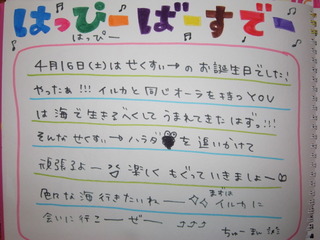 はっぴーばーすでー
はっぴー
4月16日(土)は せくすぃーの お誕生日でした!
やったぁ!!! イルカと 同じ オーラを 持つ YOU
は 海で 生きるべくして うまれてきた はずっ!!!
そんな せくすぃー ハラダ を 追いかけて
頑張るよー 楽しく もぐって いきましょー
色々な 海 行きたいねー まずは イルカに
会いに 行こーぜー
ちゅー